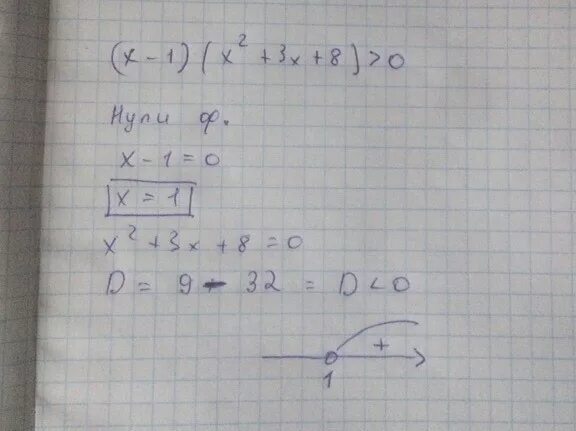 (x - 1) (x² + 3x + 8) > 0
Нули ф.
x - 1 = 0
x = 1
x² + 3x + 8 = 0
D = 9 - 32 = D < 0
+
1